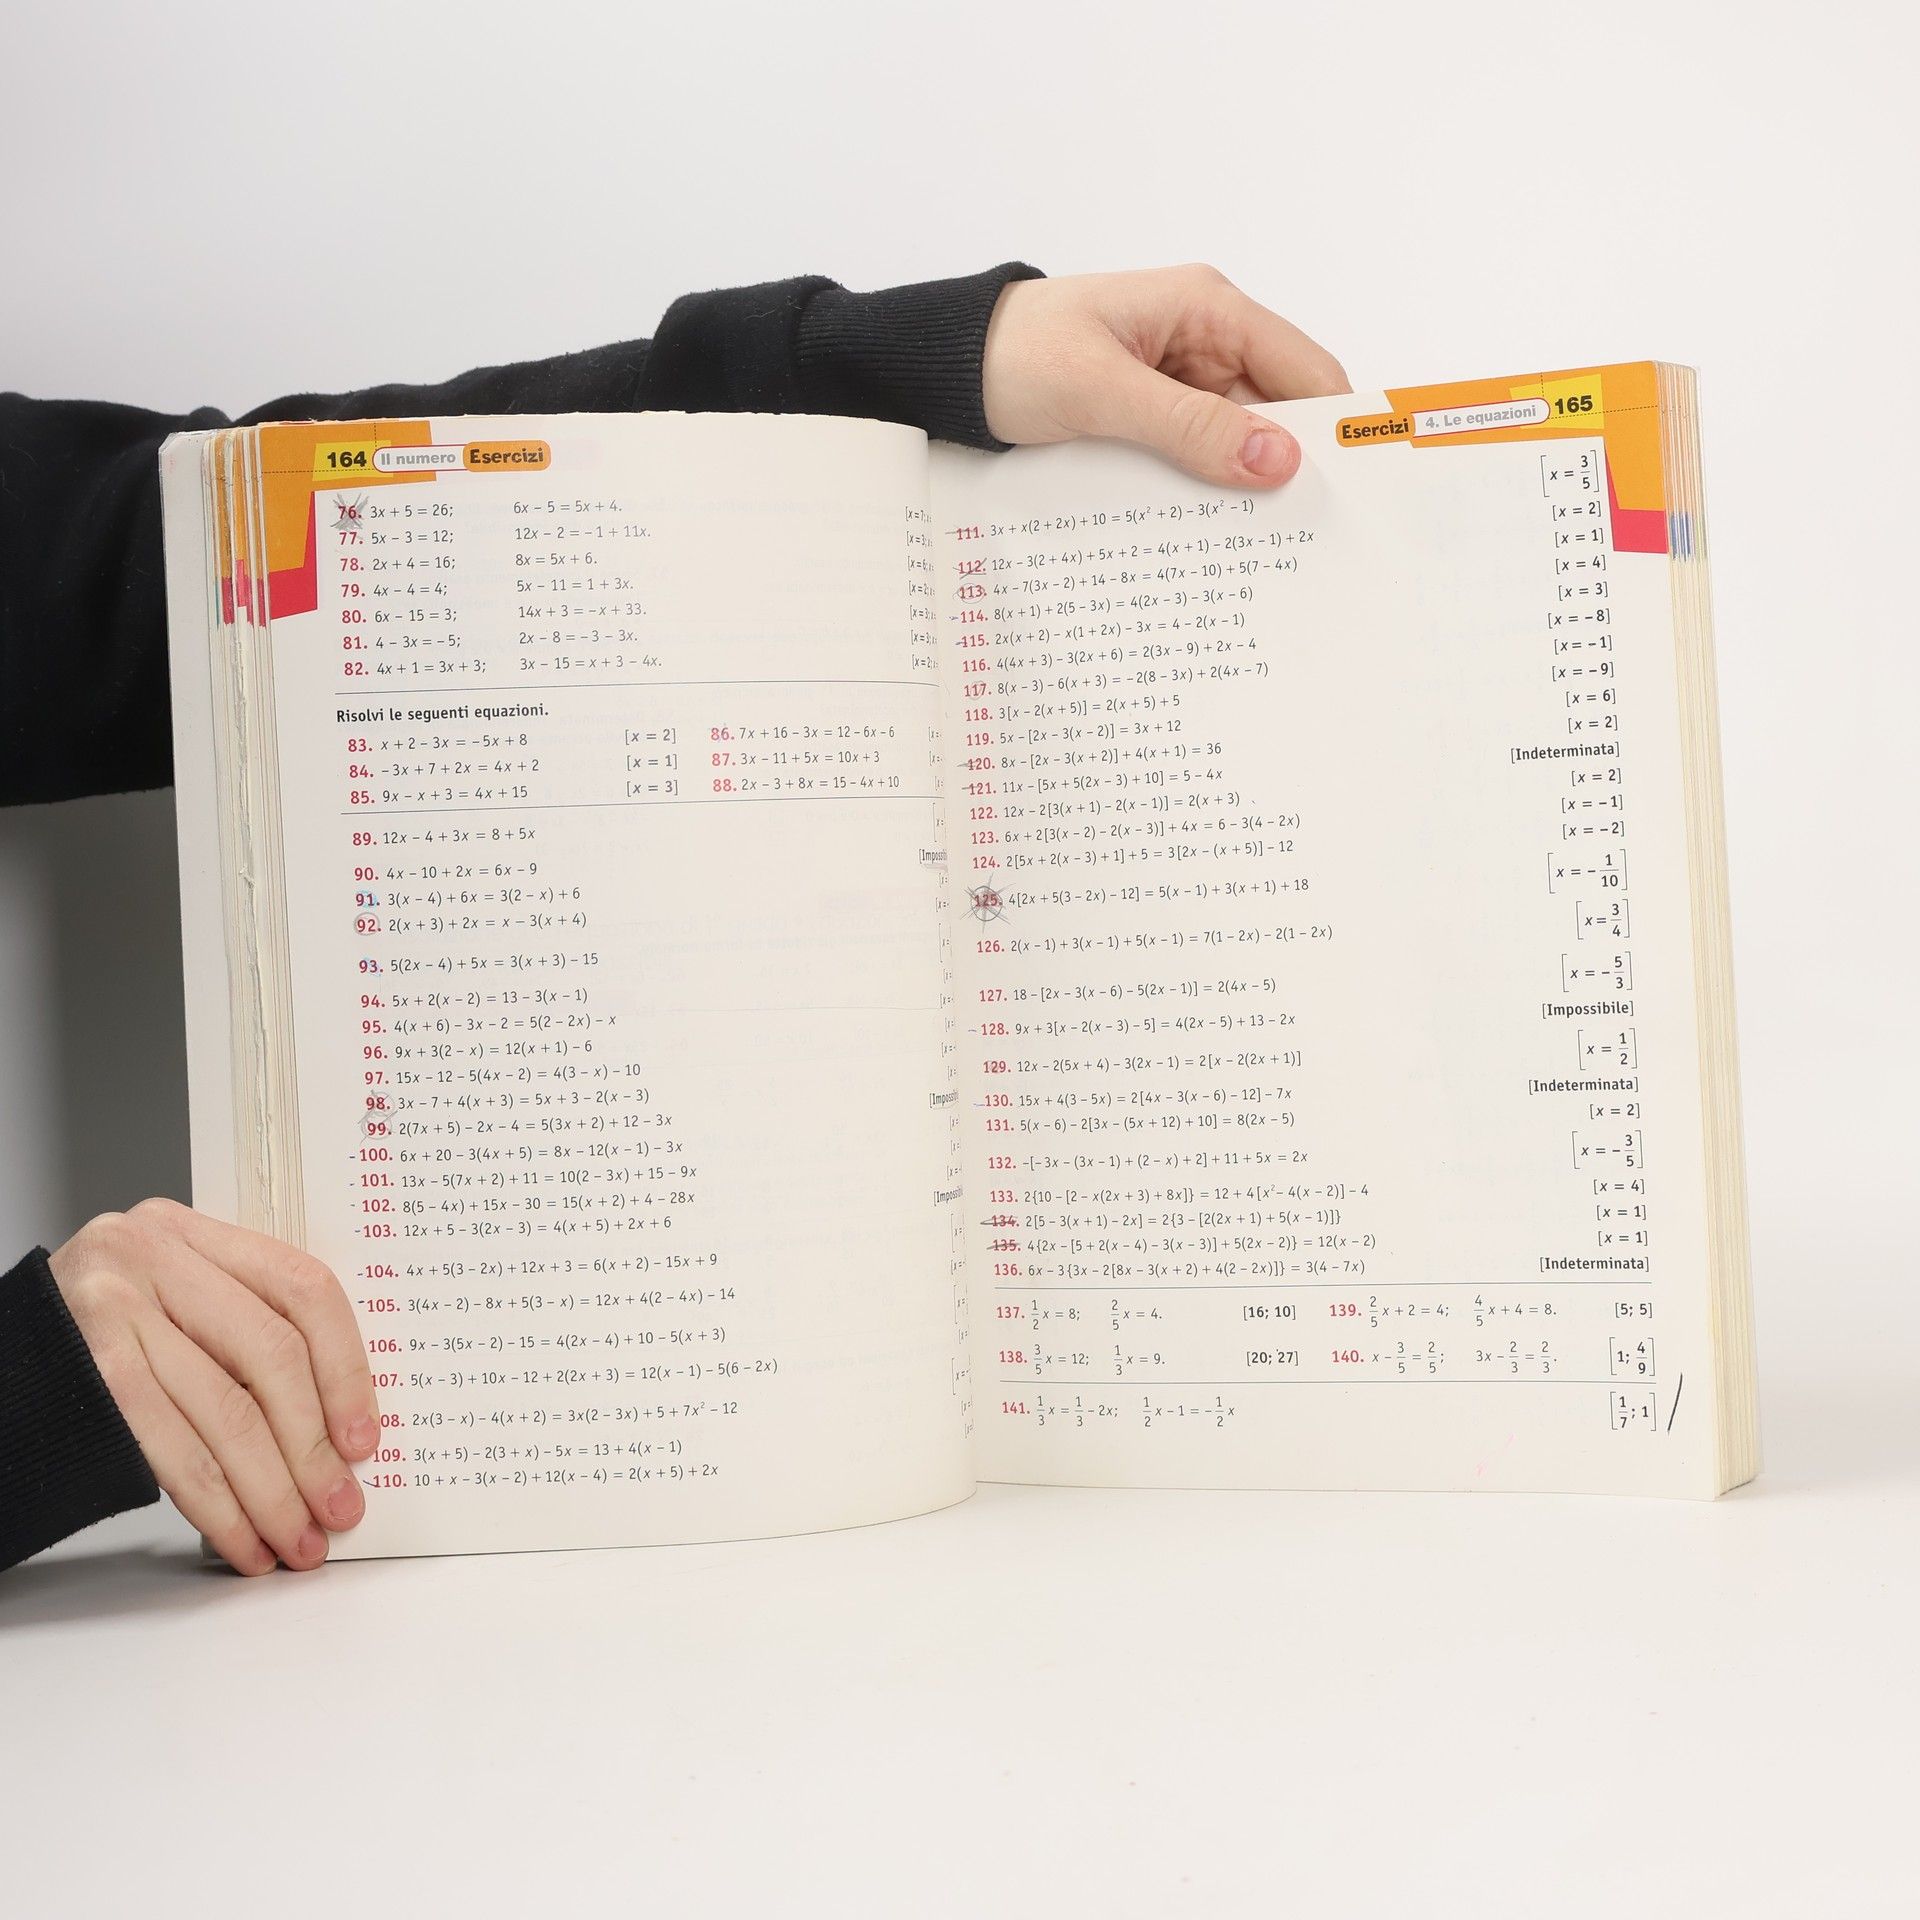 164 Il numero Esercizi
76. 3x + 5 = 26; 6x − 5 = 5x + 4. [x = 7; x
77. 5x − 3 = 12; 12x − 2 = −1 + 11x. [x = 3; x
78. 2x + 4 = 16; 8x = 5x + 6. [x = 6; x
79. 4x − 4 = 4; 5x − 11 = 1 + 3x. [x = 2; x
80. 6x − 15 = 3; 14x + 3 = −x + 33. [x = 3; x
81. 4 − 3x = −5; 2x − 8 = −3 − 3x. [x = 3; x
82. 4x + 1 = 3x + 3; 3x − 15 = x + 3 − 4x. [x = 2; x
Risolvi le seguenti equazioni.
83. x + 2 − 3x = −5x + 8 [x = 2] 86. 7x + 16 − 3x = 12 − 6x − 6
84. −3x + 7 + 2x = 4x + 2 [x = 1] 87. 3x − 11 + 5x = 10x + 3
85. 9x − x + 3 = 4x + 15 [x = 3] 88. 2x − 3 + 8x = 15 − 4x + 10
89. 12x − 4 + 3x = 8 + 5x
90. 4x − 10 + 2x = 6x − 9
91. 3(x − 4) + 6x = 3(2 − x) + 6
92. 2(x + 3) + 2x = x − 3(x + 4)
93. 5(2x − 4) + 5x = 3(x + 3) − 15
94. 5x + 2(x − 2) = 13 − 3(x − 1)
95. 4(x + 6) − 3x − 2 = 5(2 − 2x) − x
96. 9x + 3(2 − x) = 12(x + 1) − 6
97. 15x − 12 − 5(4x − 2) = 4(3 − x) − 10
98. 3x − 7 + 4(x + 3) = 5x + 3 − 2(x − 3)
99. 2(7x + 5) − 2x − 4 = 5(3x + 2) + 12 − 3x
100. 6x + 20 − 3(4x + 5) = 8x − 12(x − 1) − 3x
101. 13x − 5(7x + 2) + 11 = 10(2 − 3x) + 15 − 9x
102. 8(5 − 4x) + 15x − 30 = 15(x + 2) + 4 − 28x
103. 12x + 5 − 3(2x − 3) = 4(x + 5) + 2x + 6
104. 4x + 5(3 − 2x) + 12x + 3 = 6(x + 2) − 15x + 9
105. 3(4x − 2) − 8x + 5(3 − x) = 12x + 4(2 − 4x) − 14
106. 9x − 3(5x − 2) − 15 = 4(2x − 4) + 10 − 5(x + 3)
107. 5(x − 3) + 10x − 12 + 2(2x + 3) = 12(x − 1) − 5(6 − 2x)
08. 2x(3 − x) − 4(x + 2) = 3x(2 − 3x) + 5 + 7x² − 12
109. 3(x + 5) − 2(3 + x) − 5x = 13 + 4(x − 1)
110. 10 + x − 3(x − 2) + 12(x − 4) = 2(x + 5) + 2x
Esercizi 4. Le equazioni 165
111. 3x + x(2 + 2x) + 10 = 5(x² + 2) − 3(x² − 1) [x = 3/5]
112. 12x − 3(2 + 4x) + 5x + 2 = 4(x + 1) − 2(3x − 1) + 2x [x = 2]
113. 4x − 7(3x − 2) + 14 − 8x = 4(7x − 10) + 5(7 − 4x) [x = 1]
114. 8(x + 1) + 2(5 − 3x) = 4(2x − 3) − 3(x − 6) [x = 4]
115. 2x(x + 2) − x(1 + 2x) − 3x = 4 − 2(x − 1) [x = 3]
116. 4(4x + 3) − 3(2x + 6) = 2(3x − 9) + 2x − 4 [x = −8]
117. 8(x − 3) − 6(x + 3) = −2(8 − 3x) + 2(4x − 7) [x = −1]
118. 3[x − 2(x + 5)] = 2(x + 5) + 5 [x = −9]
119. 5x − [2x − 3(x − 2)] = 3x + 12 [x = 6]
120. 8x − [2x − 3(x + 2)] + 4(x + 1) = 36 [x = 2]
121. 11x − [5x + 5(2x − 3) + 10] = 5 − 4x [Indeterminata]
122. 12x − 2[3(x + 1) − 2(x − 1)] = 2(x + 3) [x = 2]
123. 6x + 2[3(x − 2) − 2(x − 3)] + 4x = 6 − 3(4 − 2x) [x = −1]
124. 2[5x + 2(x − 3) + 1] + 5 = 3[2x − (x + 5)] − 12 [x = −2]
125. 4[2x + 5(3 − 2x) − 12] = 5(x − 1) + 3(x + 1) + 18 [x = −1/10]
126. 2(x − 1) + 3(x − 1) + 5(x − 1) = 7(1 − 2x) − 2(1 − 2x) [x = 3/4]
127. 18 − [2x − 3(x − 6) − 5(2x − 1)] = 2(4x − 5) [x = −5/3]
128. 9x + 3[x − 2(x − 3) − 5] = 4(2x − 5) + 13 − 2x [Impossibile]
129. 12x − 2(5x + 4) − 3(2x − 1) = 2[x − 2(2x + 1)] [x = 1/2]
130. 15x + 4(3 − 5x) = 2[4x − 3(x − 6) − 12] − 7x [Indeterminata]
131. 5(x − 6) − 2[3x − (5x + 12) + 10] = 8(2x − 5) [x = 2]
132. −[−3x − (3x − 1) + (2 − x) + 2] + 11 + 5x = 2x [x = −3/5]
133. 2{10 − [2 − x(2x + 3) + 8x]} = 12 + 4[x² − 4(x − 2)] − 4 [x = 4]
134. 2[5 − 3(x + 1) − 2x] = 2{3 − [2(2x + 1) + 5(x − 1)]} [x = 1]
135. 4{2x − [5 + 2(x − 4) − 3(x − 3)] + 5(2x − 2)} = 12(x − 2) [x = 1]
136. 6x − 3{3x − 2[8x − 3(x + 2) + 4(2 − 2x)]} = 3(4 − 7x) [Indeterminata]
137. 1/2 x = 8; 2/5 x = 4. [16; 10] 139. 2/5 x + 2 = 4; 4/5 x + 4 = 8. [5; 5]
138. 3/5 x = 12; 1/3 x = 9. [20; 27] 140. x − 3/5 = 2/5; 3x − 2/3 = 2/3. [1; 4/9]
141. 1/3 x = 1/3 − 2x; 1/2 x − 1 = −1/2 x [1/7; 1]